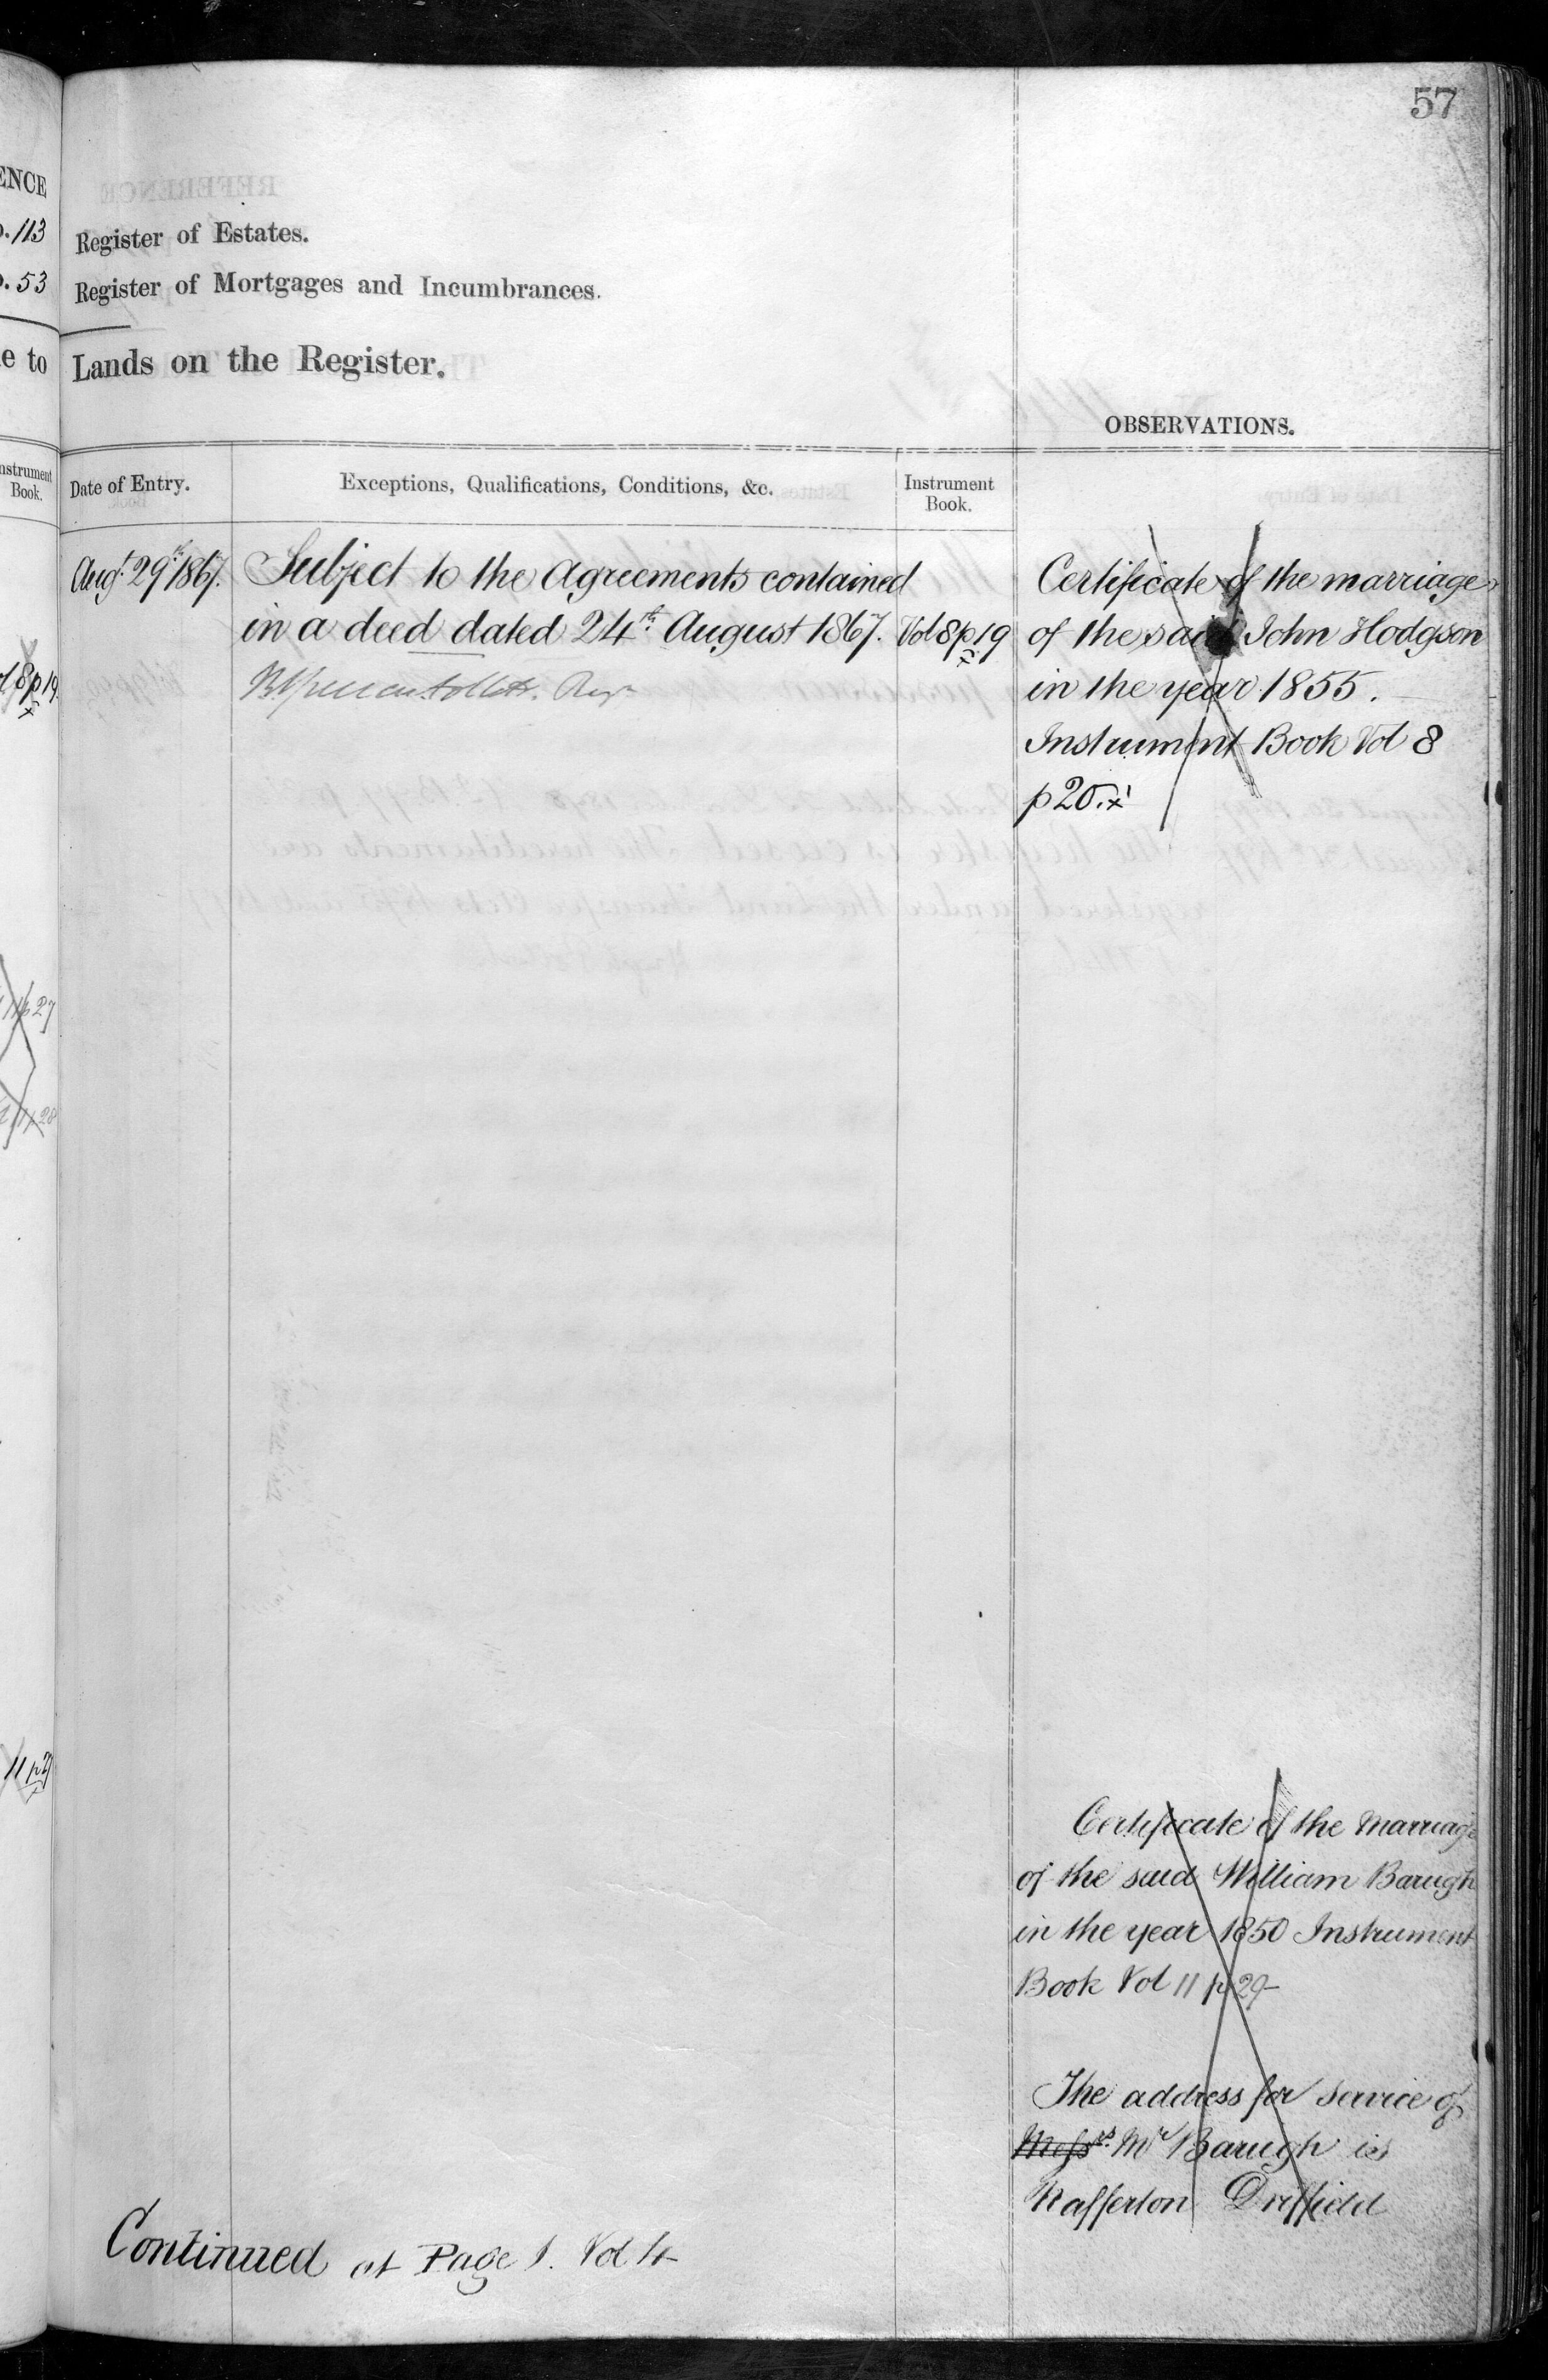 57
ENCE
. 113
. 53
e to
Register of Estates.
Register of Mortgages and Incumbrances.
Lands on the Register.
OBSERVATIONS.
Instrument
Book.
Date of Entry.
Exceptions, Qualifications, Conditions, &c.
Instrument
Book.
Augt. 29th 1867. Subject to the Agreements contained
in a deed dated 24th August 1867. Vol 8 p 19
Regr
8 p 19
Certificate of the marriage
of the said John Hodgson
in the year 1855.
Instrument Book Vol 8
p 20. x
11 p 27
p 28
11 p 29
Certificate of the Marriage
of the said William Barugh
in the year 1850 Instrument
Book Vol 11 p 29
The address for service of
Messrs. Mr Barugh is
Rafferton Driffield
Continued at Page 1. Vol 4